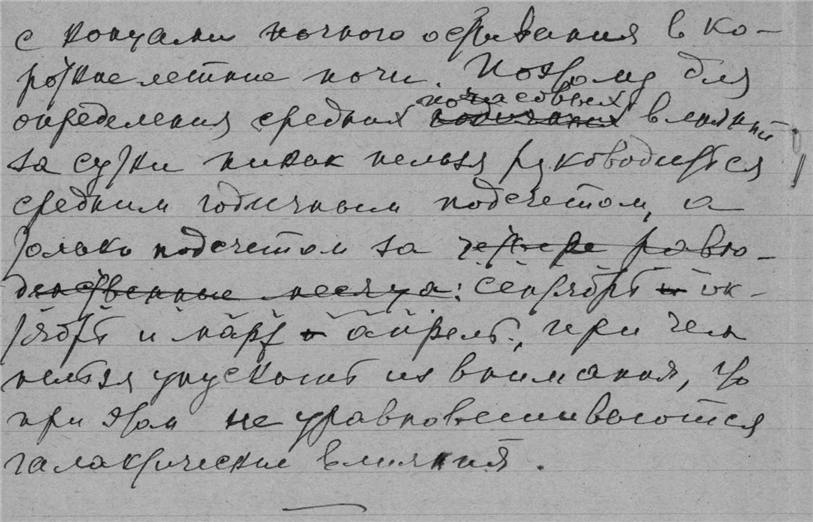 с концами ночного остывания в ко-
роткие летние ночи. Поэтому для
почасовых
определения средних влияний
за сутки никак нельзя руководиться
средним годичным подсчетом, а
только подсчетом за четыре равно-
денственные месяца: сентябрь и ок-
тябрь и март и апрель, при чем
нельзя упускать из внимания, что
при этом не уравновешиваются
галактические влияния.